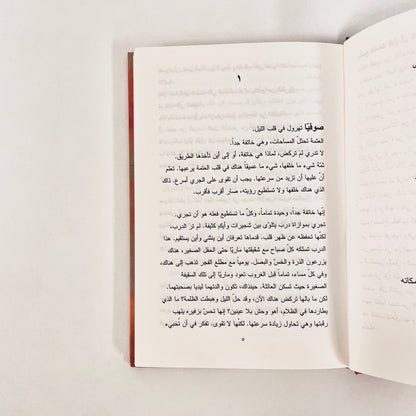 ١
صوفيا تهرول في قلب الليل.
العتمة تحتلّ المساحات، وهي خائفة جداً.
لا تدري لمَ تركض، لماذا هي خائفة، أو إلى أين تأخذها الطريق.
ثمّة شيء ما خلفها، شيء ما عميقاً هناك في قلب العتمة يرعبها. تعلم
أنّ عليها أن تزيد من سرعتها. يجب أن تقوى على الجري أسرع. ذاك
الذي هناك خلفها ولا تستطيع رؤيته، صار أقرب فأقرب.
إنّها خائفة جداً، وحيدة تماماً، وكلّ ما تستطيع فعله هو أن تجري.
تجري بموازاة درب يتلوّى بين شجيرات وأيكٍ كثيفة. لم ترَ الدرب،
لكنّها تحفظه عن ظهر قلب. قدماها تعرفان أين ينثني وأين يستقيم. هذا
الدرب تسلكه كلّ صباح مع شقيقتها ماريّا حتى الحقل الصغير، هناك
يزرعون الذرة والخسّ والبصل. يومياً مع مطلع الفجر تذهب إلى هناك،
وفي كلّ مساء، تماماً قبل الغروب تعود وماريّا إلى تلك السقيفة
الصغيرة حيث تسكن العائلة. حينذاك، تكون والدتهما ليديا بصحبتهما.
لكن ما بالها تركض هناك الآن، وقد حلّ الليل وهبطت الظلمة؟ ما الذي
يطاردها في الظلام، أهو وحش بلا عينين؟ إنّها تحسّ بزفيره يلهب
رقبتها وهي تحاول زيادة سرعتها. لكنّها لا تقوى. تفكر في أن تُخبىء
٥
سكاته